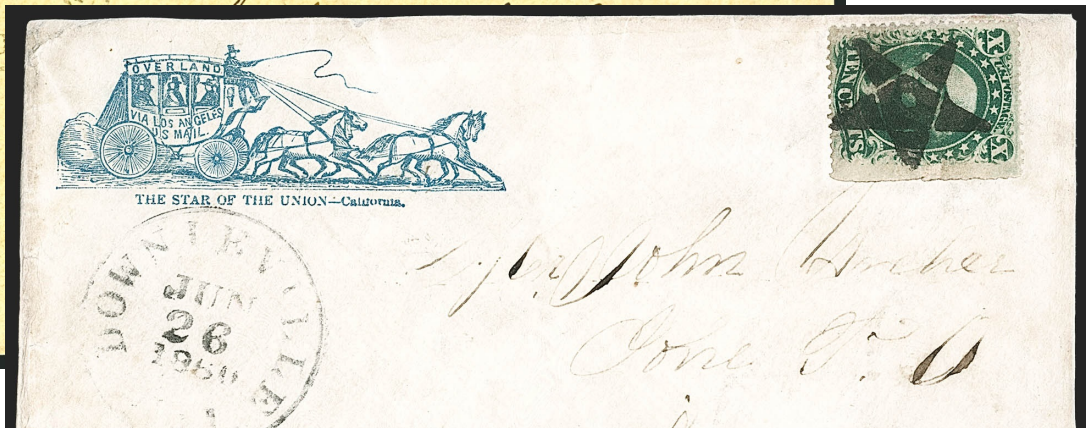 OVERLAND
VIA LOS ANGELES
U S MAIL.
THE STAR OF THE UNION—California.
DOWNIEVILLE
JUN
26
1860
X TEN CENTS X
John
Ione